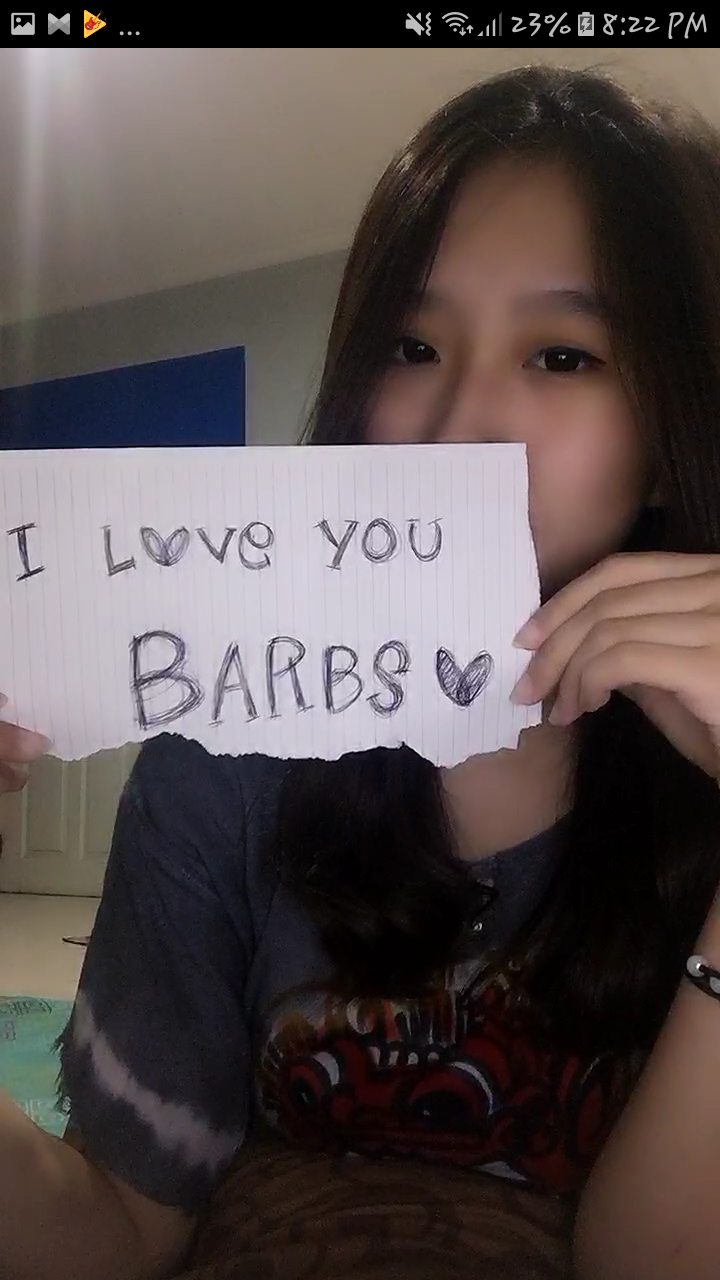 ... 23% 8:22 PM
I LOVE YOU
BARBS